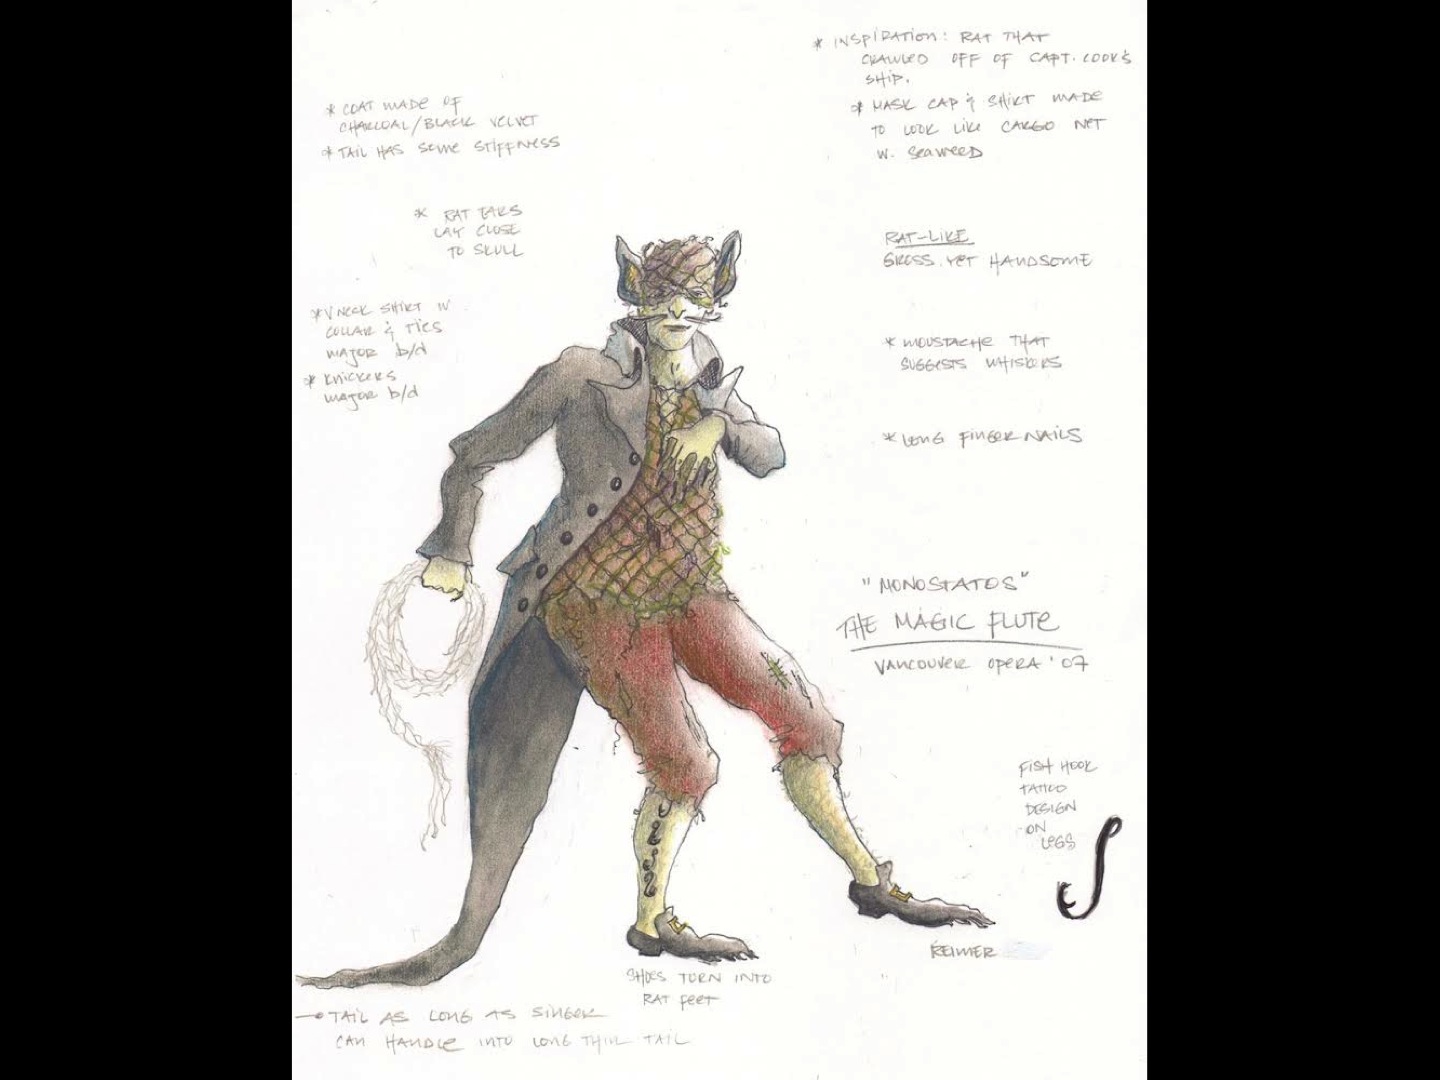 * INSPIRATION: RAT THAT
CRAWLED OFF OF CAPT. COOK'S
SHIP.
* MASK CAP & SHIRT MADE
TO LOOK LIKE CARGO NET
W. SEAWEED
* COAT MADE OF
CHARCOAL/BLACK VELVET
* TAIL HAS SOME STIFFNESS
* RAT EARS
LAY CLOSE
TO SKULL
RAT-LIKE
GROSS. YET HANDSOME
* V NECK SHIRT W
COLLAR & TIES
MAJOR b/d
* KNICKERS
MAJOR b/d
* MOUSTACHE THAT
SUGGESTS WHISKERS
* LONG FINGER NAILS
"MONOSTATOS"
THE MAGIC FLUTE
VANCOUVER OPERA '07
FISH HOOK
TATTOO
DESIGN
ON
LEGS
REIMER
SHOES TURN INTO
RAT FEET
TAIL AS LONG AS SINGER
CAN HANDLE INTO LONG THIN TAIL